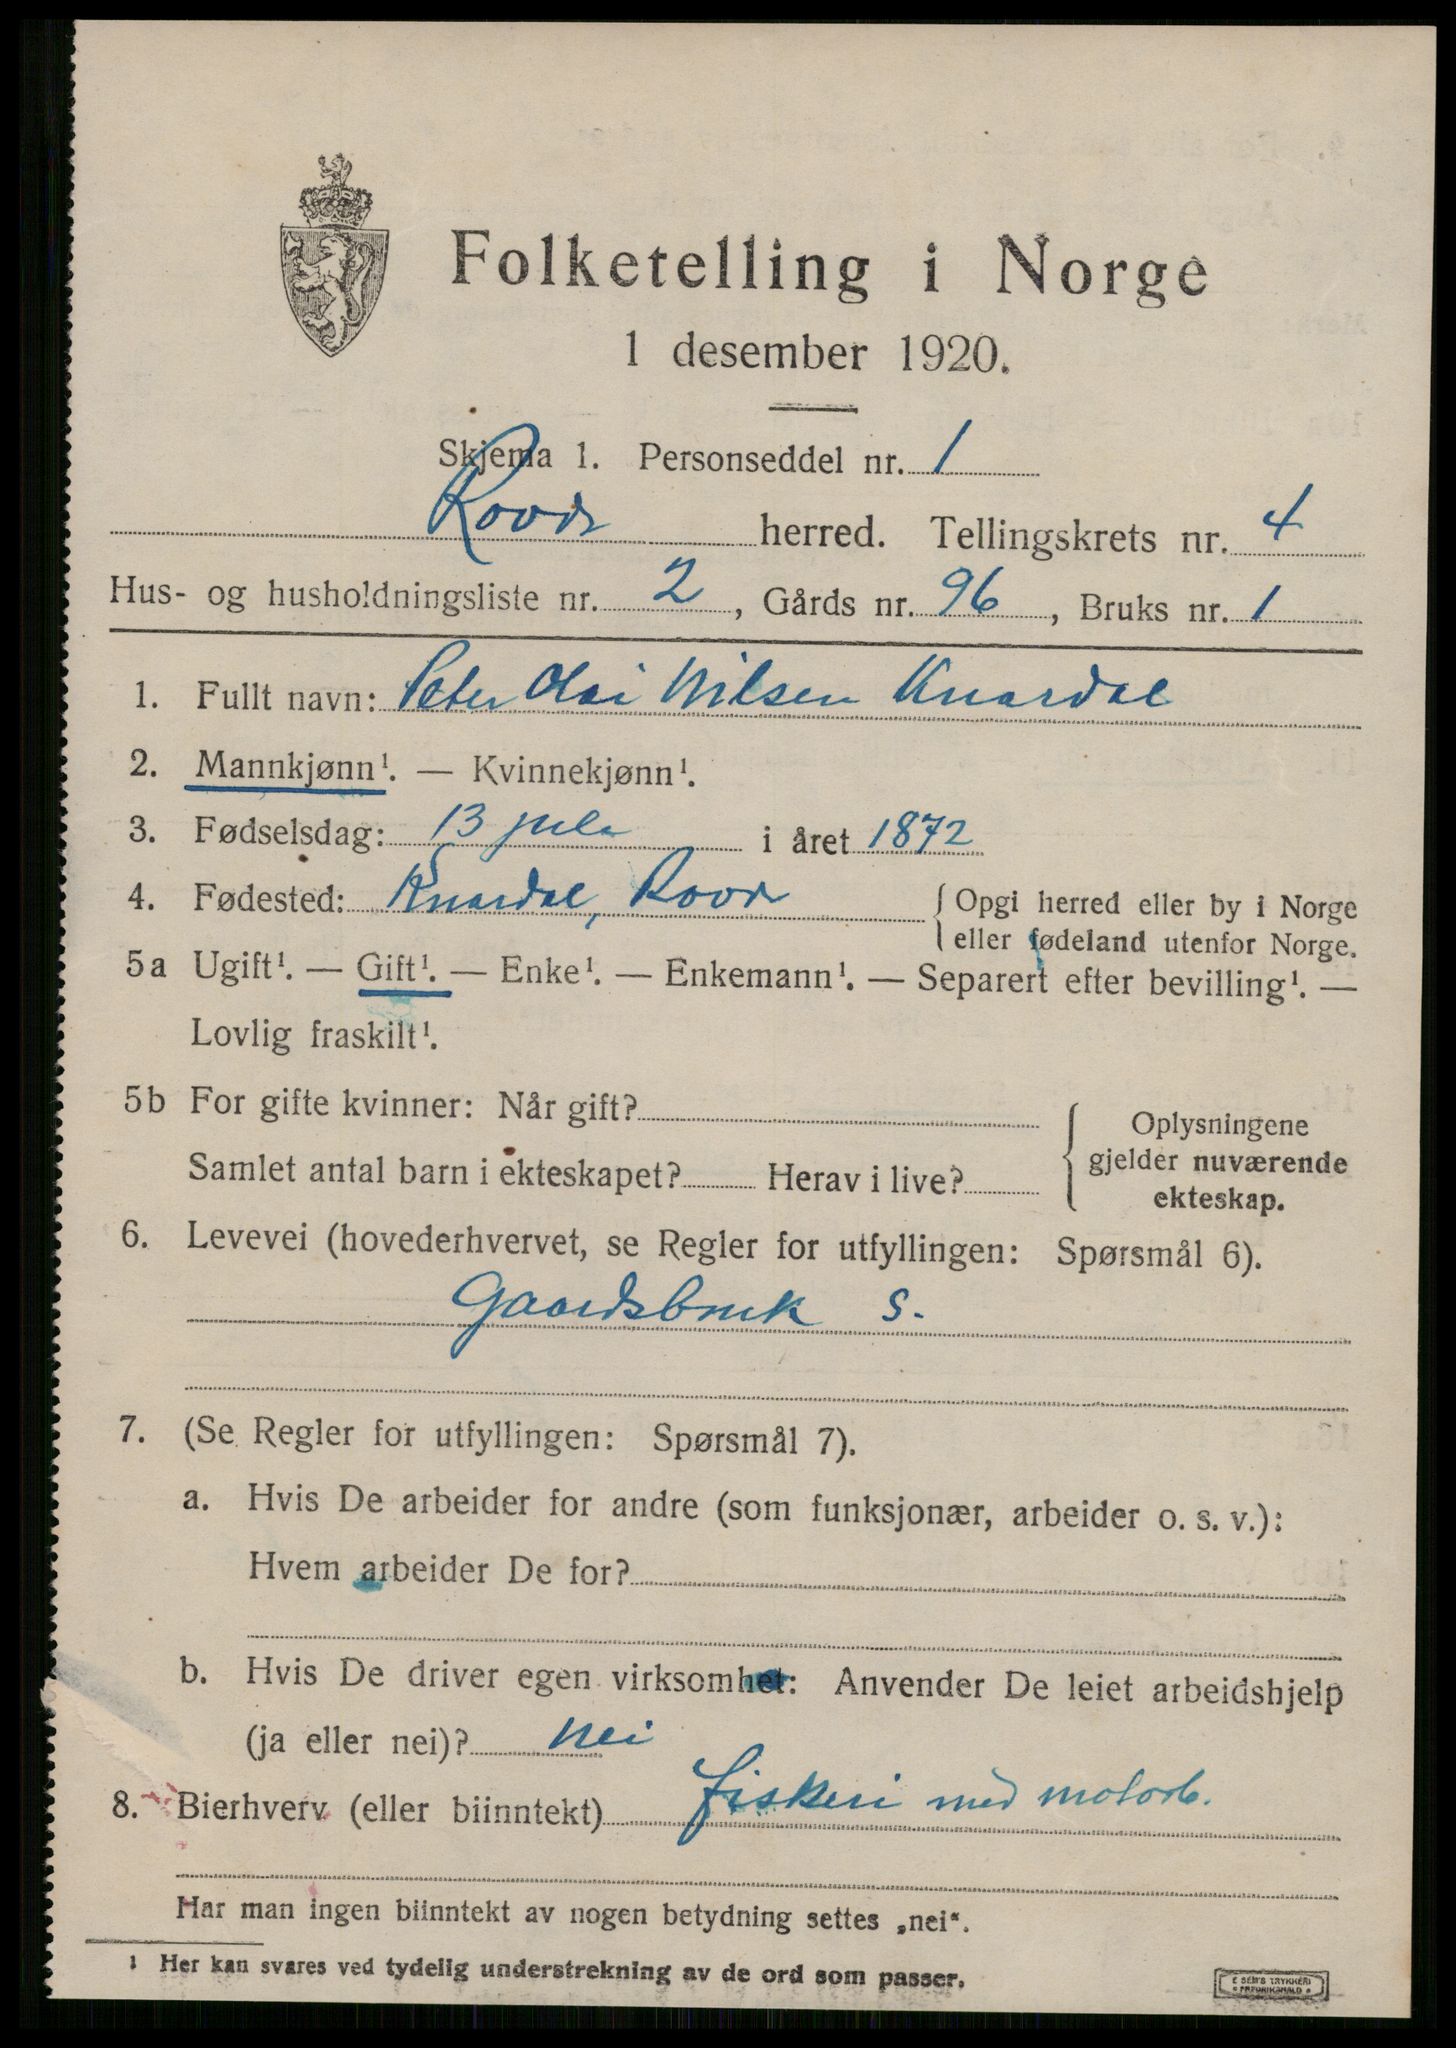 Folketelling i Norge
1 desember 1920.
Skjema 1. Personseddel nr. 1
Rovde herred. Tellingskrets nr. 4
Hus- og husholdningsliste nr. 2, Gårds nr. 96, Bruks nr. 1
1. Fullt navn: Peter Olai Nilsen Knardal
2. Mannkjønn¹. — Kvinnekjønn¹.
3. Fødselsdag: 13 juli i året 1872
4. Fødested: Knardal, Rovde { Opgi herred eller by i Norge
eller fødeland utenfor Norge.
5a Ugift¹. — Gift¹. — Enke¹. — Enkemann¹. — Separert efter bevilling¹. —
Lovlig fraskilt¹.
5b For gifte kvinner: Når gift?
Samlet antal barn i ekteskapet? Herav i live?
{ Oplysningene
gjelder nuværende
ekteskap.
6. Levevei (hovederhvervet, se Regler for utfyllingen: Spørsmål 6).
Gaardsbruk S.
7. (Se Regler for utfyllingen: Spørsmål 7).
a. Hvis De arbeider for andre (som funksjonær, arbeider o. s. v.):
Hvem arbeider De for?
b. Hvis De driver egen virksomhet: Anvender De leiet arbeidshjelp
(ja eller nei)? nei
8. Bierhverv (eller biinntekt) fiskeri med motorb.
Har man ingen biinntekt av nogen betydning settes „nei“.
¹ Her kan svares ved tydelig understrekning av de ord som passer.
E SEM'S TRYKKERI
FREDRIKSHALD